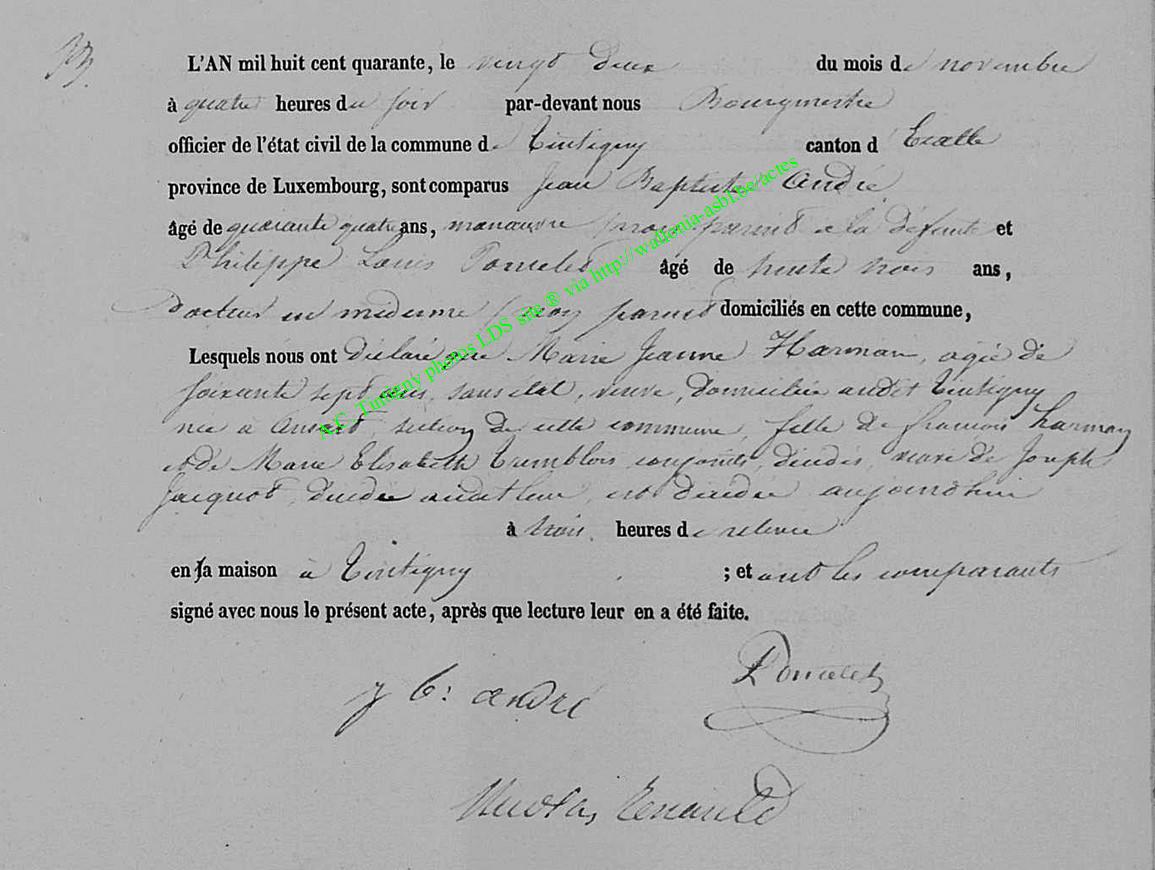 L'AN mil huit cent quarante, le vingt deux du mois de novembre
à quatre heures du soir par-devant nous Bourgmestre
officier de l'état civil de la commune de Tintigny canton d'Etalle
province de Luxembourg, sont comparus Jean Baptiste André
âgé de quarante quatre ans, manœuvre parent à la défunte et
Philippe Louis Poncelet âgé de trente trois ans,
Docteur en médecine parent domiciliés en cette commune,
Lesquels nous ont déclaré que Marie Jeanne Harman, agée de
soixante sept ans, sans état, veuve, domiciliée audit Tintigny
née à Ansart section de cette commune, fille de francois harman
et de Marie Elisabeth Tremblois conjoints, décédés, veuve de Joseph
Jacquot, décédé audit lieu, est décédée aujourdhui
à trois heures de relevée
en sa maison à Tintigny ; et ont les comparants
signé avec nous le présent acte, après que lecture leur en a été faite.
j b: andré
Poncelet
Nicolas Renauld
A.C. Tintigny photos LDS site ® via http://wallonia-asbl.be/actes